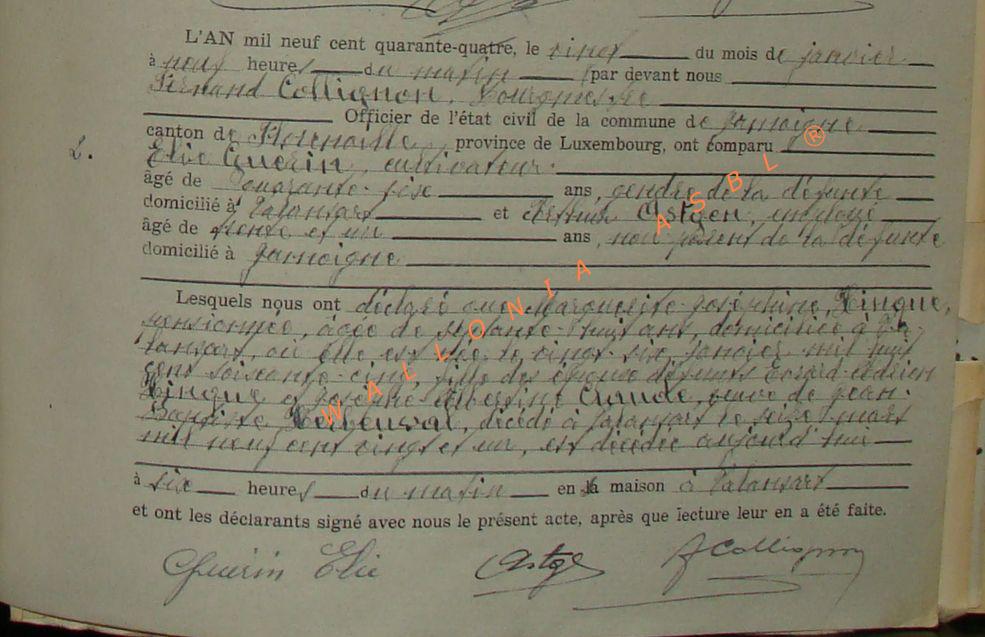 L'AN mil neuf cent quarante-quatre, le vingt du mois de janvier
à neuf heures du matin par devant nous
Fernand Collignon, Bourgmestre
Officier de l'état civil de la commune de Jamoigne
2.
canton de Florenville, province de Luxembourg, ont comparu
Elie Guerin, cultivateur.
âgé de quarante-six ans, gendre de la défunte
domicilié à Valansart et Arthur Astgen, employé
âgé de trente et un ans, non parent de la défunte
domicilié à Jamoigne
Lesquels nous ont déclaré que Marguerite-Joséphine,
pensionnée, âgée de septante-huit ans, domiciliée à Va-
lansart, où elle est née le vingt-six janvier mil huit
cent soixante-cinq, fille des époux défunts
et Claude, veuve de Jean-
Baptiste, décédé à Valansart le seize mars
mil neuf cent vingt et un, est décédée aujourd'hui
à six heures du matin en sa maison à Valansart
et ont les déclarants signé avec nous le présent acte, après que lecture leur en a été faite.
Guérin Elie Astge FCollignon
WALLONIA ASBL ®